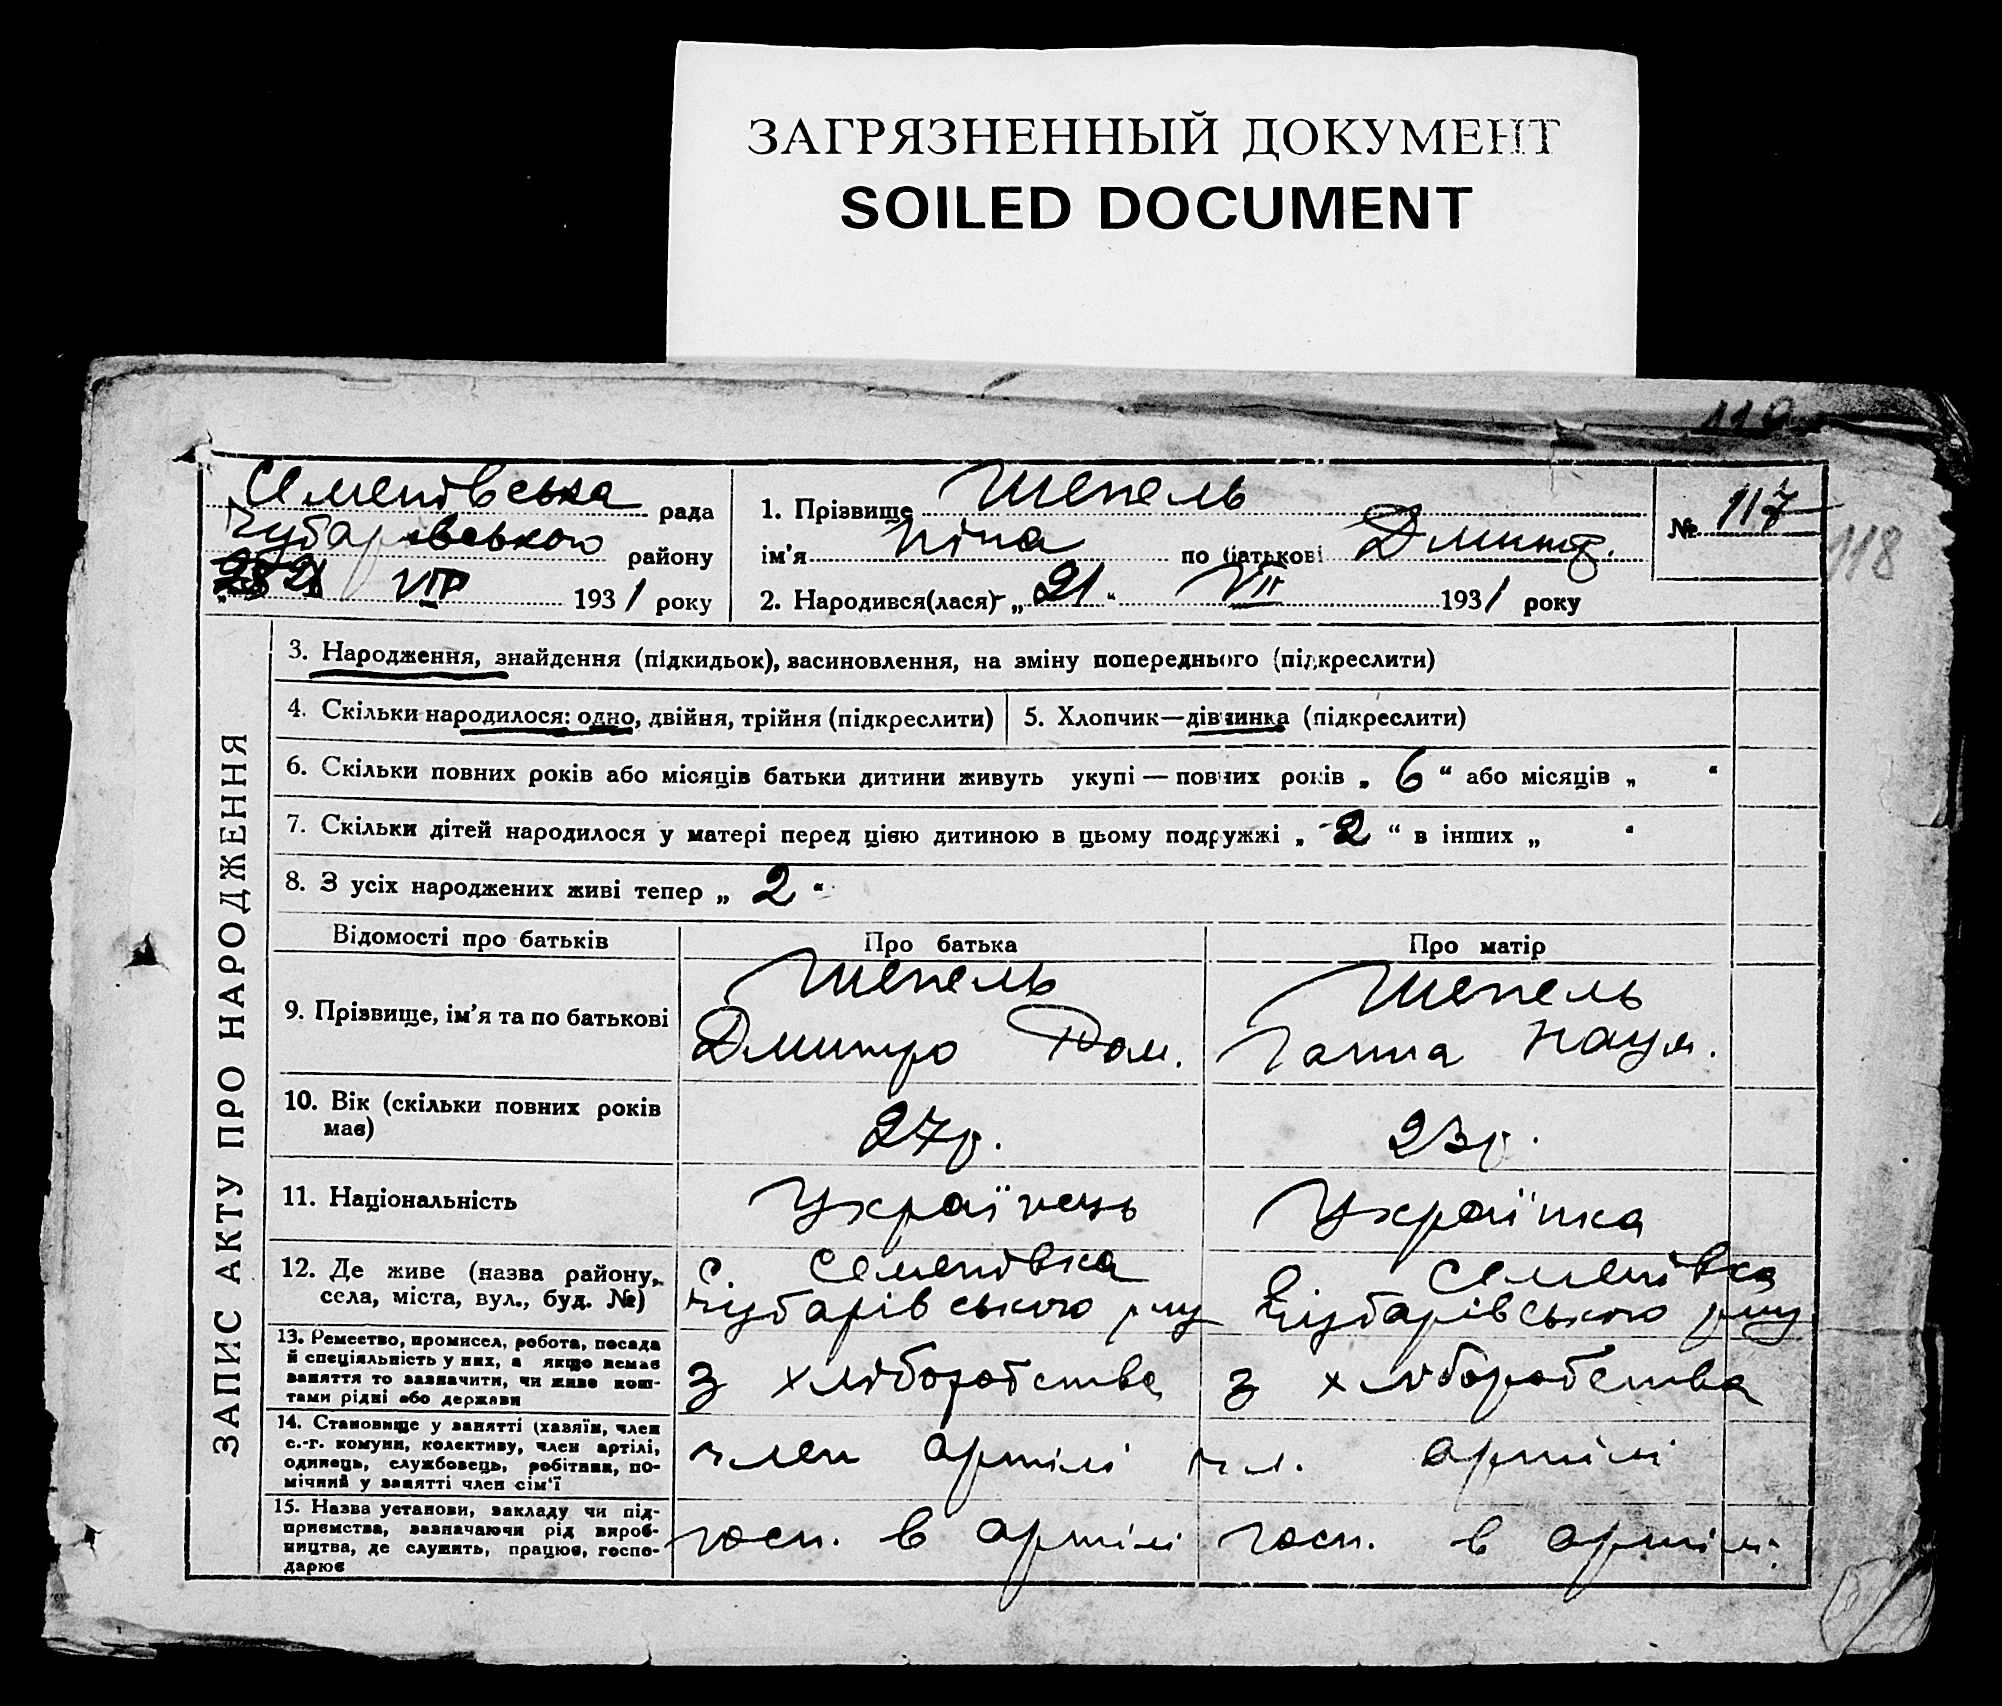 ЗАГРЯЗНЕННЫЙ ДОКУМЕНТ
SOILED DOCUMENT
119
Семенівська рада
Чубарівського району
28 VII 1931 року
1. Прізвище Шепель
ім'я Ніна по батькові Дмитр.
2. Народився(лася) „21“ VII 1931 року
№ 117
118
ЗАПИС АКТУ ПРО НАРОДЖЕННЯ
3. Народження, знайдення (підкидьок), засиновлення, на зміну попереднього (підкреслити)
4. Скільки народилося: одно, двійня, трійня (підкреслити)
5. Хлопчик—дівчинка (підкреслити)
6. Скільки повних років або місяців батьки дитини живуть укупі — повних років „ 6 “ або місяців „ “
7. Скільки дітей народилося у матері перед цією дитиною в цьому подружжі „ 2 “ в інших „ “
8. З усіх народжених живі тепер „ 2 “
Відомості про батьків Про батька Про матір
9. Прізвище, ім'я та по батькові
Шепель
Дмитро Ром.
Шепель
Ганна Наум.
10. Вік (скільки повних років
має)
27р.
23р.
11. Національність
Українець
Українка
12. Де живе (назва району,
села, міста, вул., буд. №)
с. Семенівка
Чубарівського р-ну
с. Семенівка
Чубарівського р-ну
13. Ремество, промисел, робота, посада
й спеціяльність у них, а якщо немає
заняття то зазначити, чи живе кош-
тами рідні або держави
з хліборобства
з хліборобства
14. Становище у занятті (хазяїн, член
с.-г. комуни, колективу, член артілі,
одинець, службовець, робітник, по-
мічний у занятті член сім'ї
член артілі
чл. артілі
15. Назва установи, закладу чи під-
приємства, зазначаючи рід вироб-
ництва, де служить, працює, госпо-
дарює
госп. в артілі
госп. в артілі.